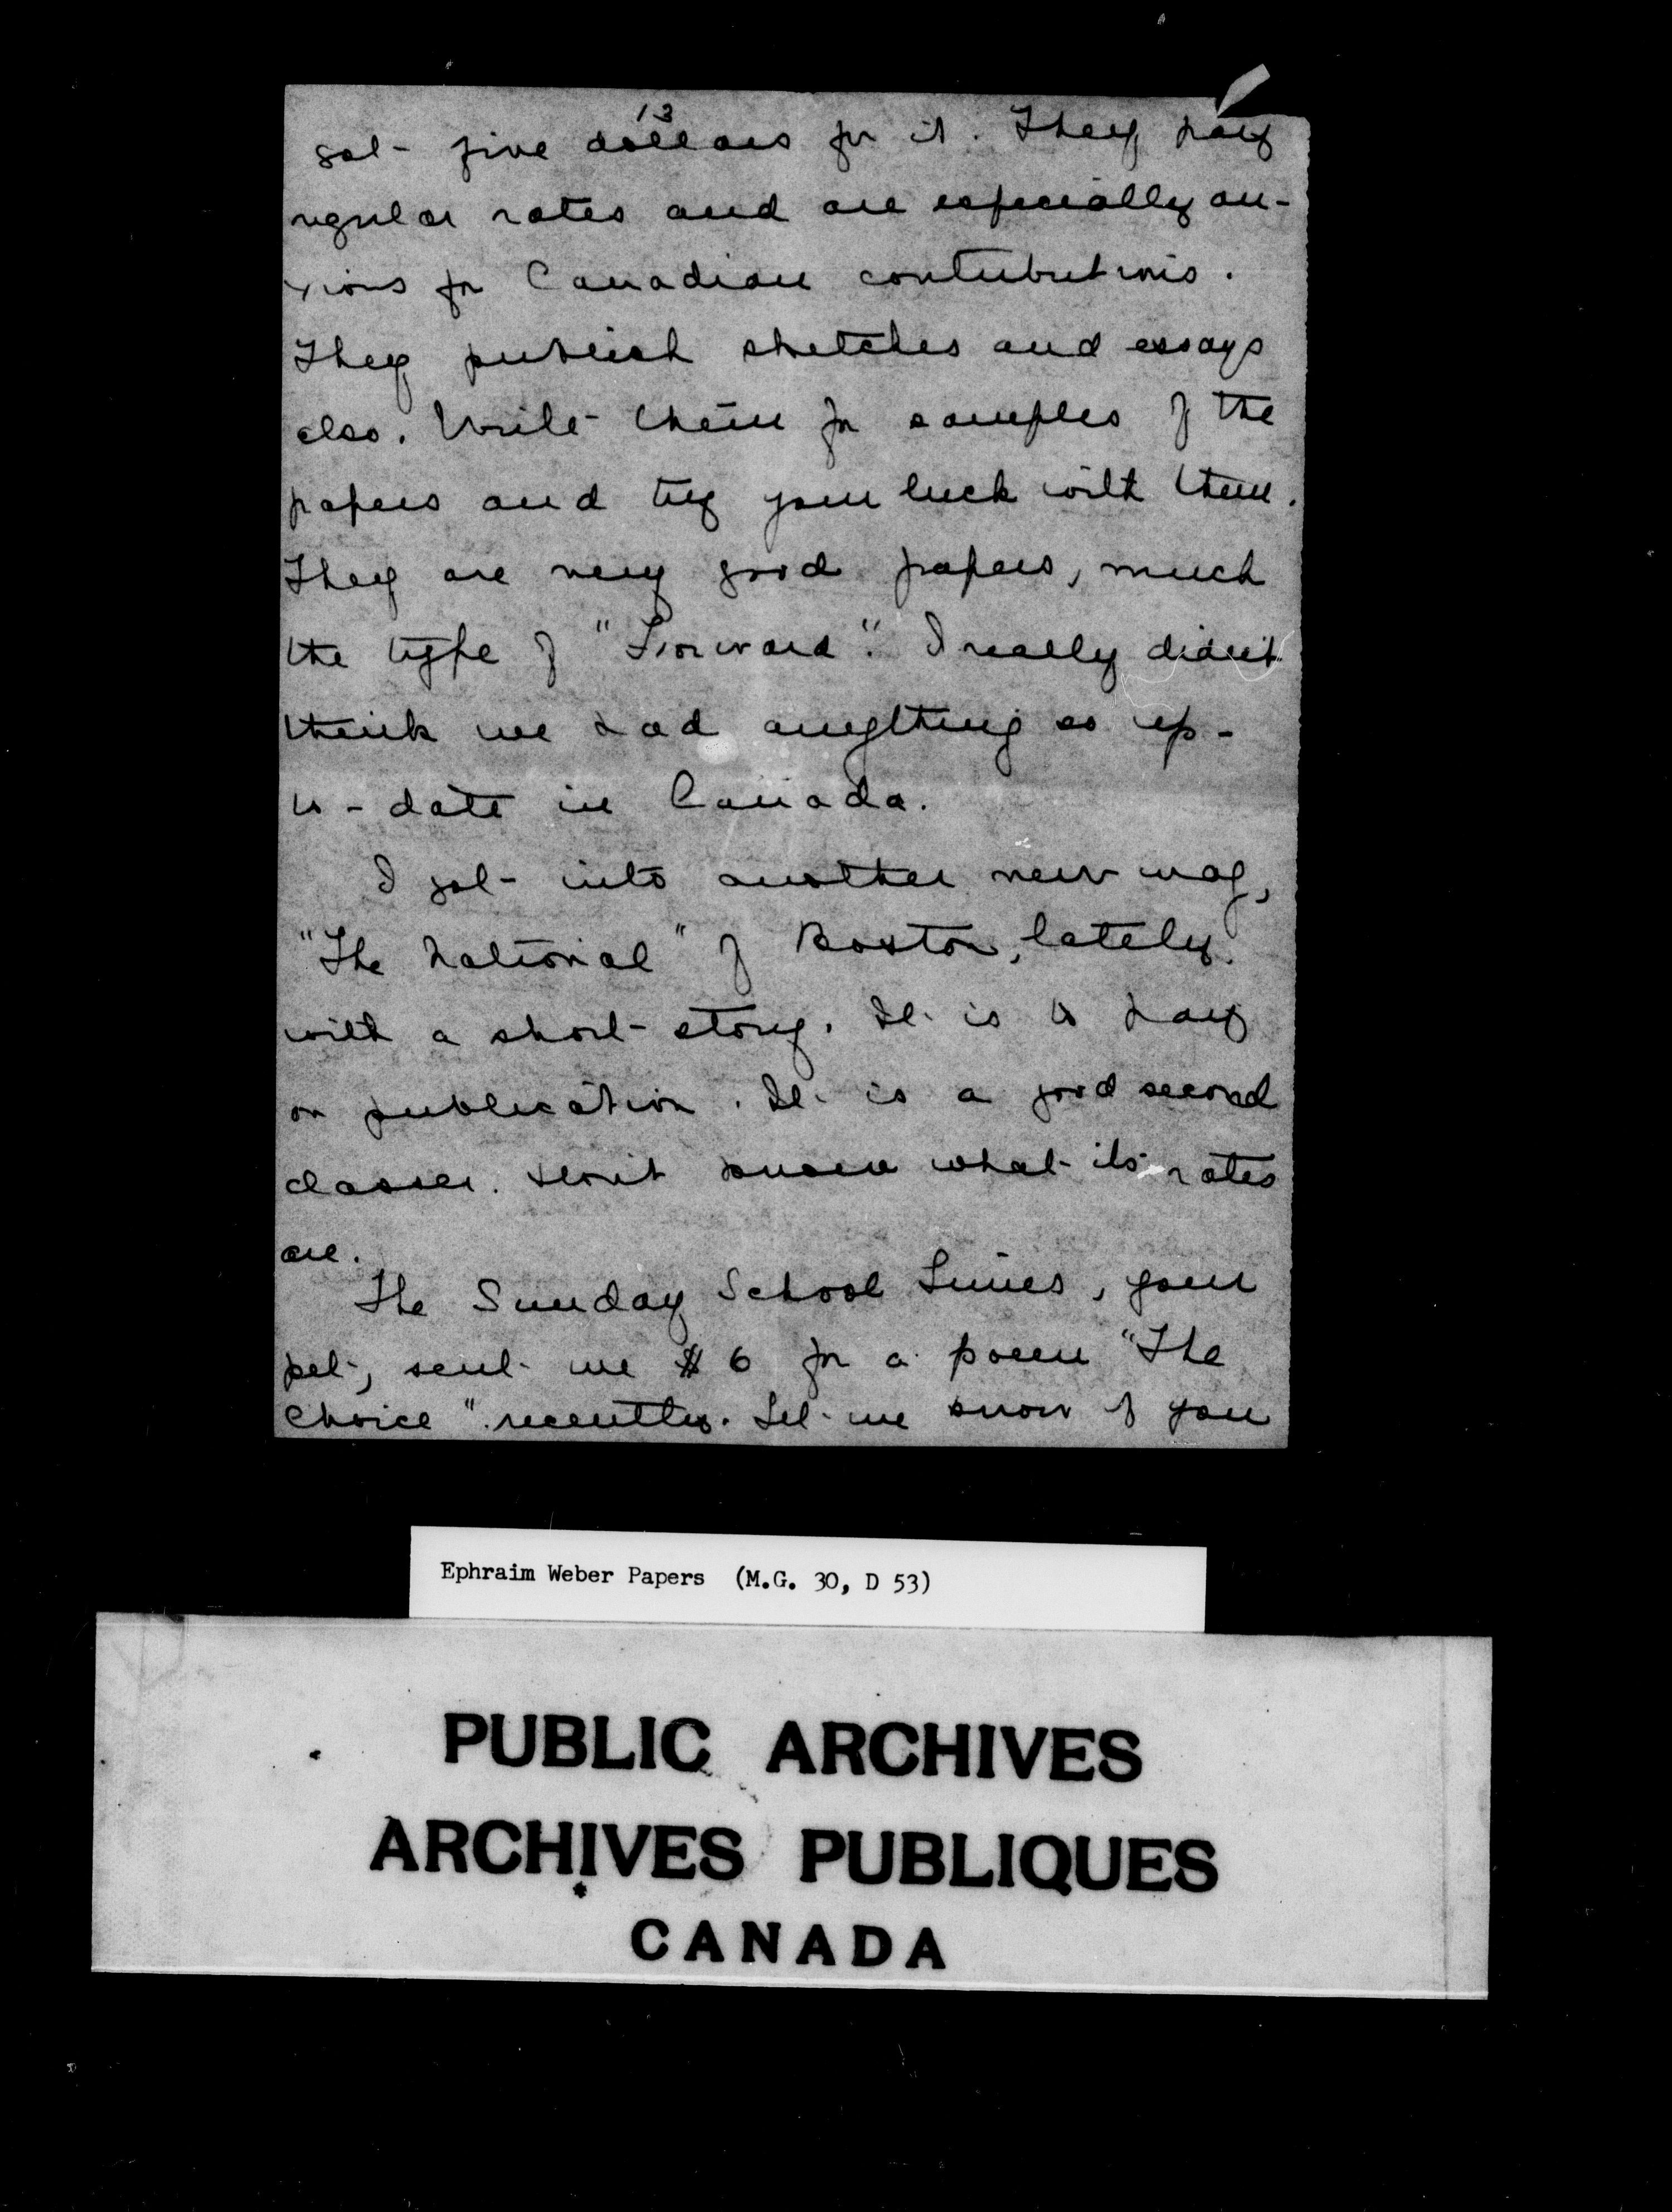 13
got five dollars for it. They pay
regular rates and are especially an-
xious for Canadian contributions.
They publish sketches and essays
also. Write them for samples of the
papers and try your luck with them.
They are very good papers, much
the type of "Forward". I really didn't
think we had anything so up-
to-date in Canada.
I got into another new mag,
"The National" of Boston, lately.
with a short story. It is to pay
on publication. It is a good second
classer. Don't know what its rates
are.
The Sunday School Times, your
pet, sent me $6 for a poem "The
Choice" recently. Let me know if you
Ephraim Weber Papers (M.G. 30, D 53)
PUBLIC ARCHIVES
ARCHIVES PUBLIQUES
CANADA